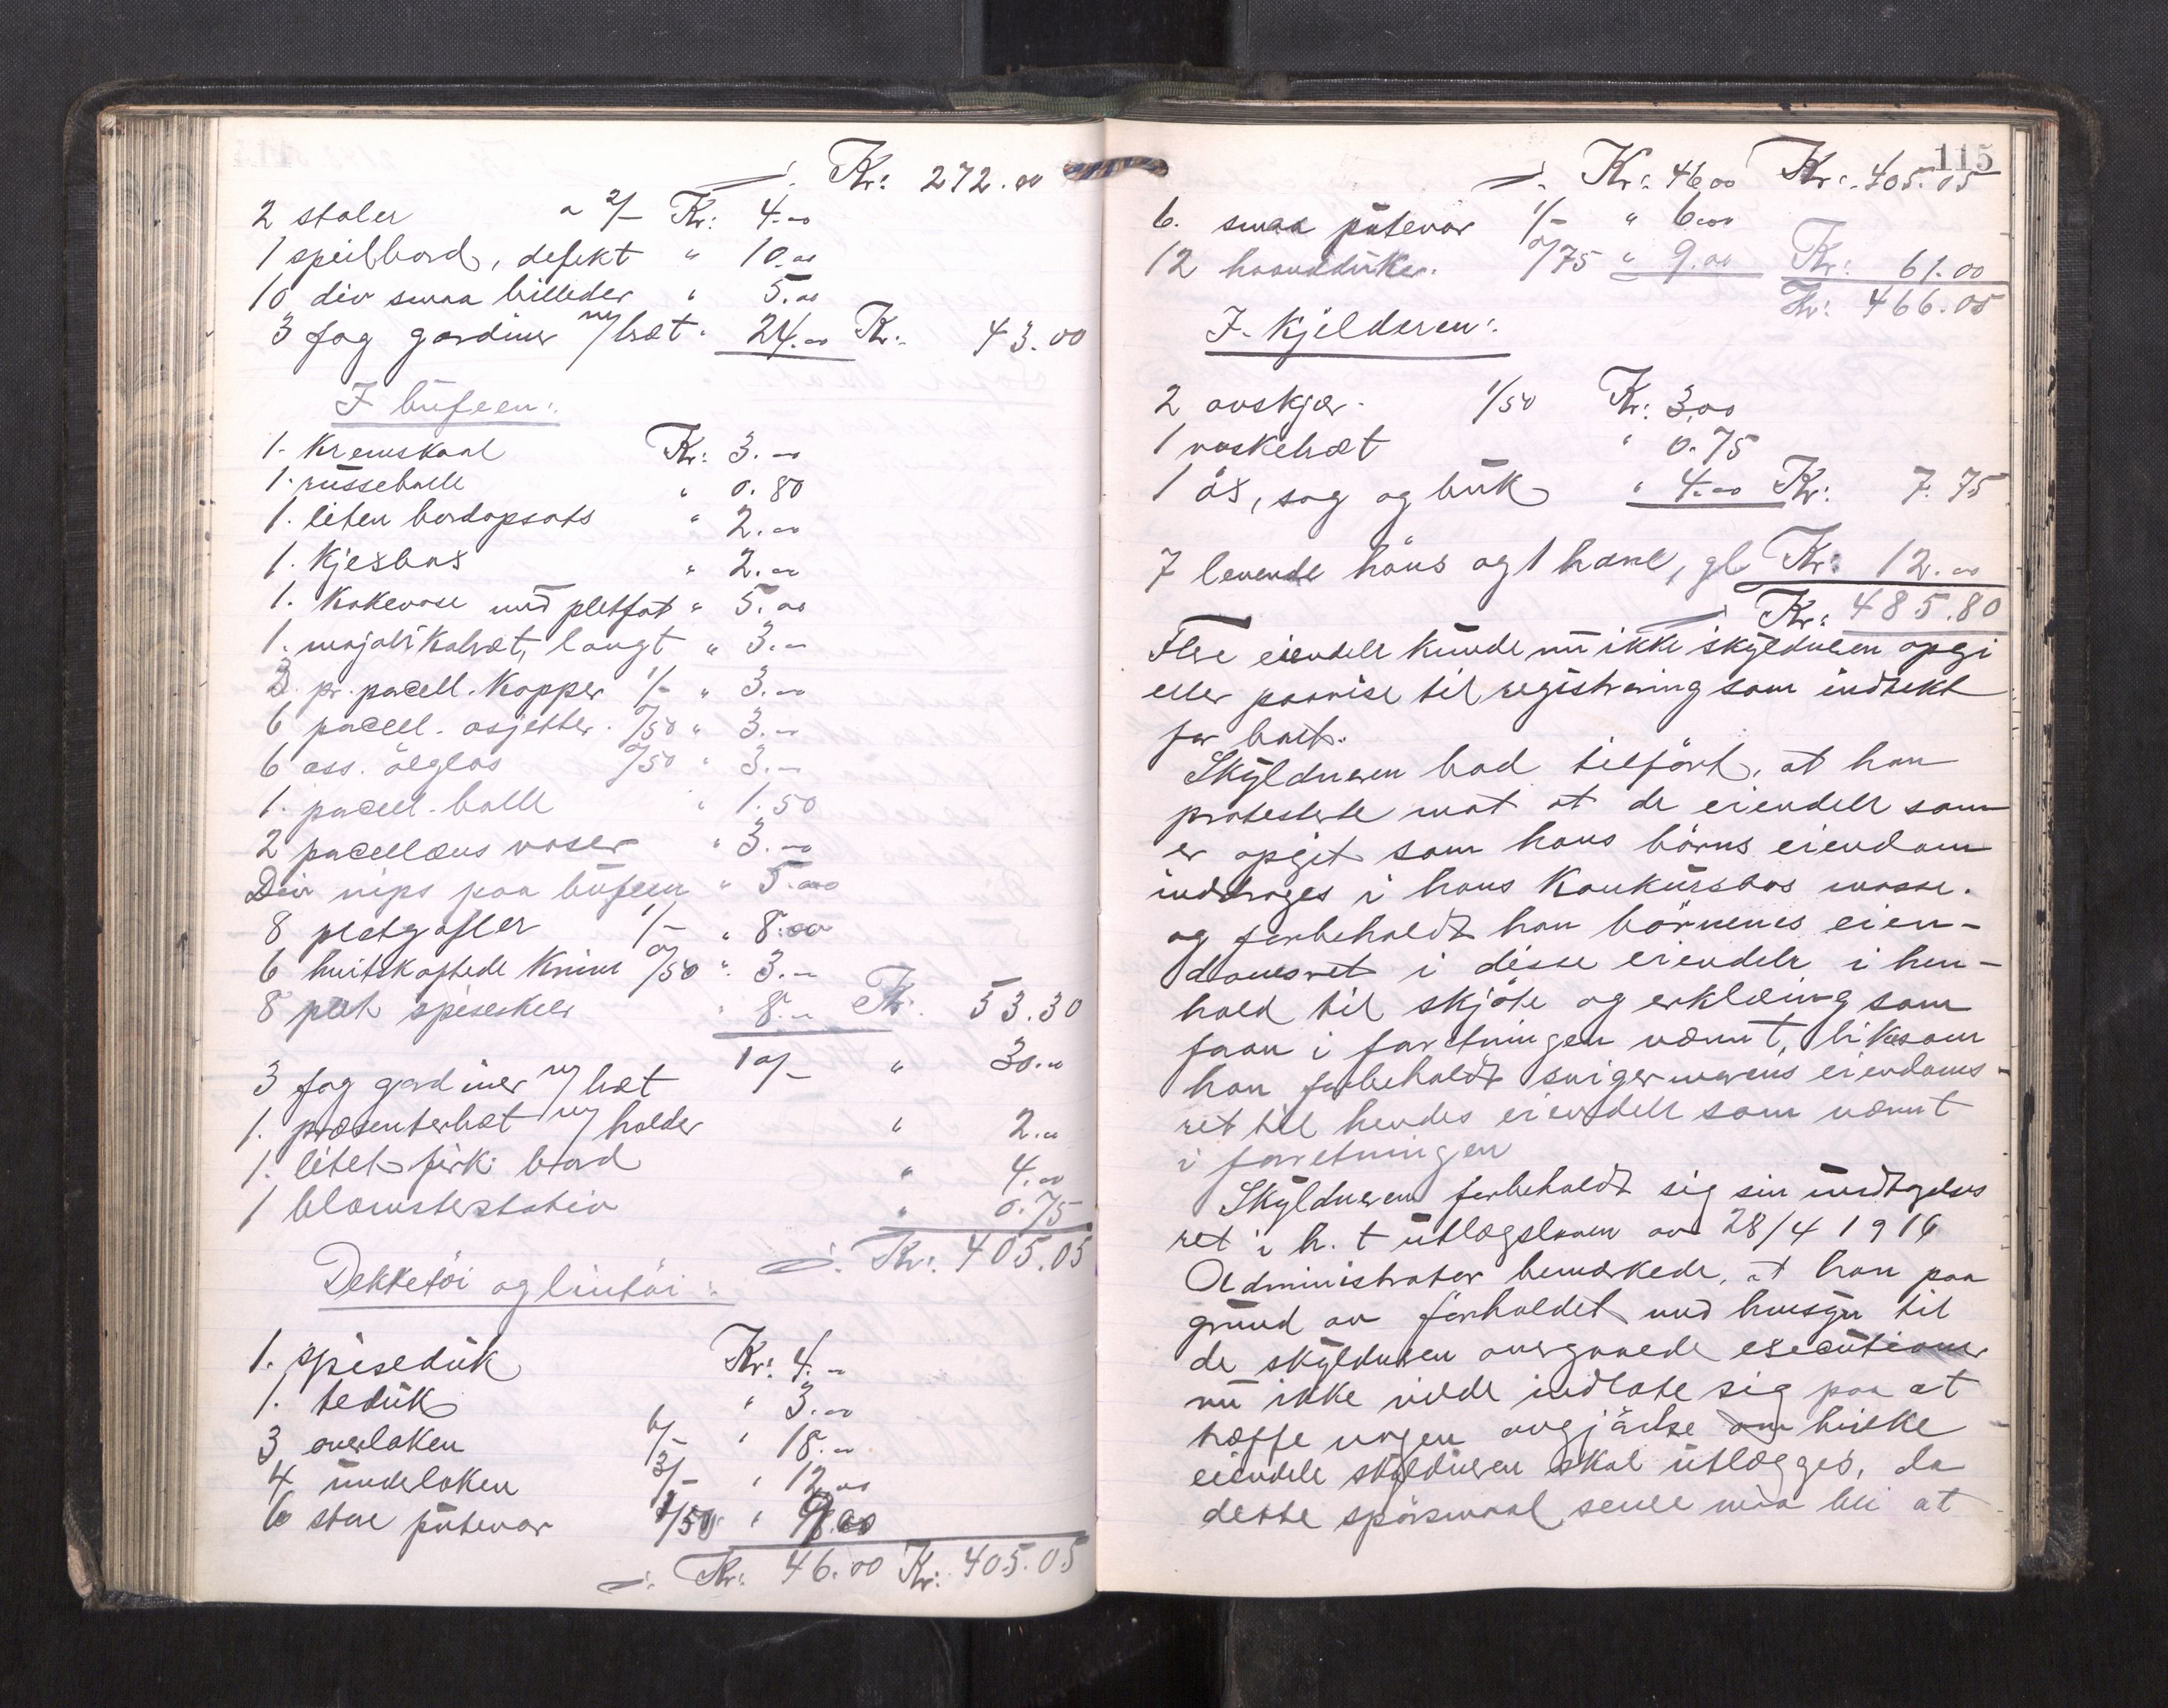 Kr: 272.00
2 stoler a 2/- Kr: 4.00
1 speilbord, defekt " 10.00
10 div smaa billeder " 5.00
3 fag gardiner m/bræt " 24.00 Kr: 43.00
I büfeen:
1. Kremskaal Kr: 3.00
1. rüssebolle " 0.80
1. liten bordopsats " 2.00
1. Kjeksbos " 2.00
1. Kakevase med pletfat " 5.00
1. majolikabræt, langt " 3.00
3 pr. pocell. Kopper 1/- " 3.00
6 pocell. asjetter. 0/50 " 3.00
6 ass. ölglas 0/50 " 3.00
1. pocell. bolle " 1.50
2 pocellæns vaser " 3.00
Div nips paa büfeen " 5.00
8 pletgafler 1/- " 8.00
6 hvitskaftede Knive 0/50 " 3.00
8 plet spiseskeer " 8.00 Kr. 53.30
3 fag gardiner m/bræt 10/- " 30.00
1. præsenterbræt m/holder " 2.00
1. litet firk. bord " 4.00
1 blomsterstativ " 0.75
Kr: 405.05
Dekketöi og lintöi:
1. spisedük Kr: 4.00
1. tedük " 3.00
3 overlaken 6/- " 18.00
4 ünderlaken 3/- " 12.00
6 store pütevar 1/50 " 9.00
Kr: 46.00 Kr: 405.05
115
Kr: 46.00 Kr: 405.05
6. smaa pütevar 1/- " 6.00
12 haanddüker. 0/75 " 9.00 Kr: 61.00
Kr: 466.05
I Kjelderen:
2 auskjær 1/50 Kr: 3.00
1 vaskebræt " 0.75
1 öx, sag og bük " 4.00 Kr: 7.75
7 levende höns og 1 hane, gl Kr: 12.00
Kr: 485.80
Flere eiendele künde nü ikke skyldneren opgi
eller paavise til registrering som indtekt
for boet.
Skyldneren bad tilfört, at han
protesterte mot at de eiendele som
er opgit som hans börns eiendom
inddrages i hans Konkürsbos masse.
og forbeholdt han börnenes eien-
domsret i disse eiendele i hen-
hold til skjöte og erklæring som
foran i forretningen nævnt, likesom
han forbeholdt svigermorens eiendoms-
ret til hendes eiendele som nævnt
i forretningen
Skyldneren forbeholdt sig sin ündtagelses
ret i h. t ütlægsloven av 28/4 1916
Administrator bemerkede, at han paa
gründ av forholdet med hensyn til
de skyldneren overgaaede executioner
nü ikke vilde indlate sig paa at
træffe nogen avgjörelse om hvilke
eiendele skyldneren skal ütlægges, da
dette spörsmaal senere maa bli at